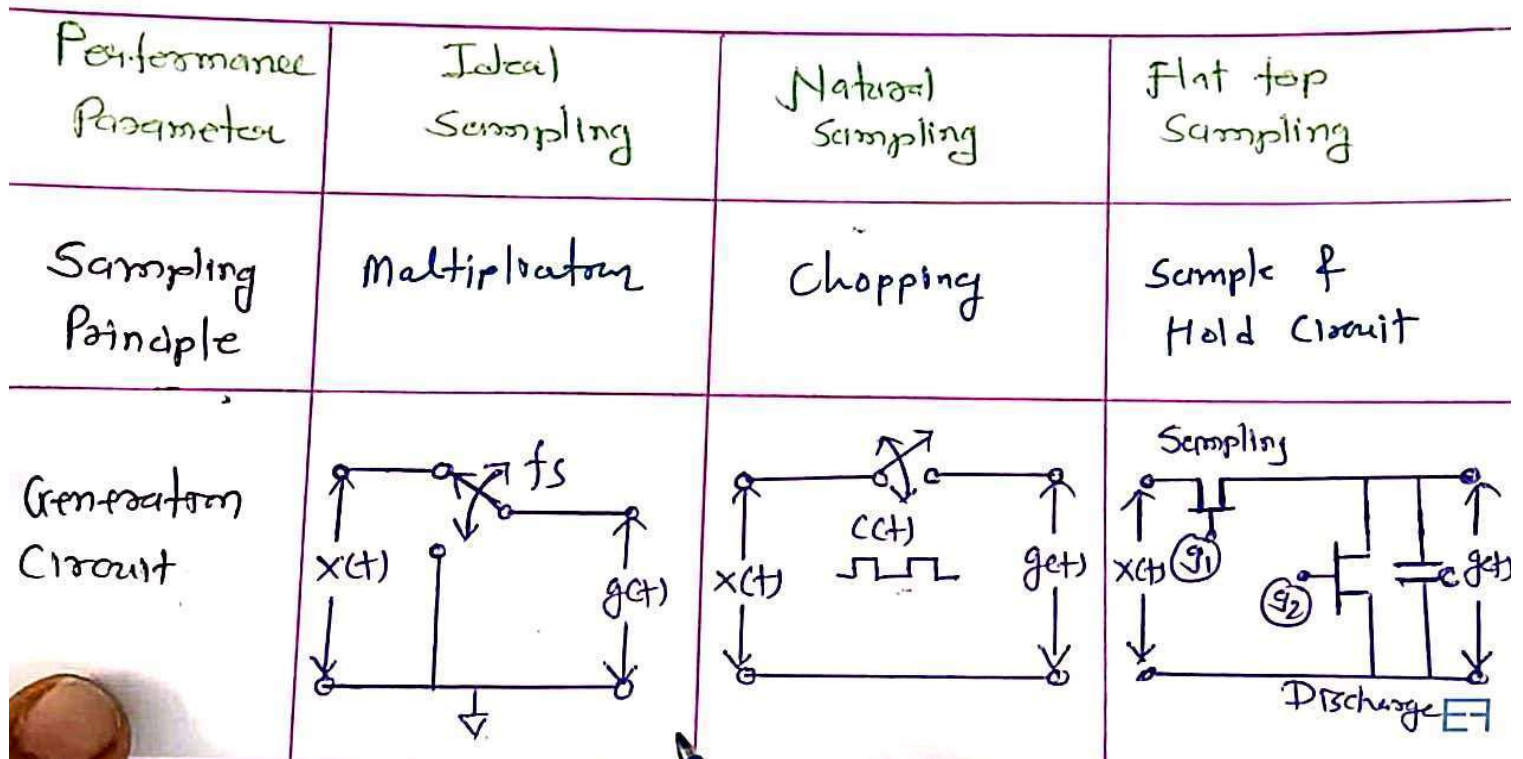 Performance
Parameter
Ideal
Sampling
Natural
Sampling
Flat top
Sampling
Sampling
Principle
Multiplication
Chopping
Sample &
Hold Circuit
Generation
Circuit
fs
x(t)
g(t)
C(t)
x(t)
g(t)
Sampling
x(t)
g1
g2
C
g(t)
Discharge